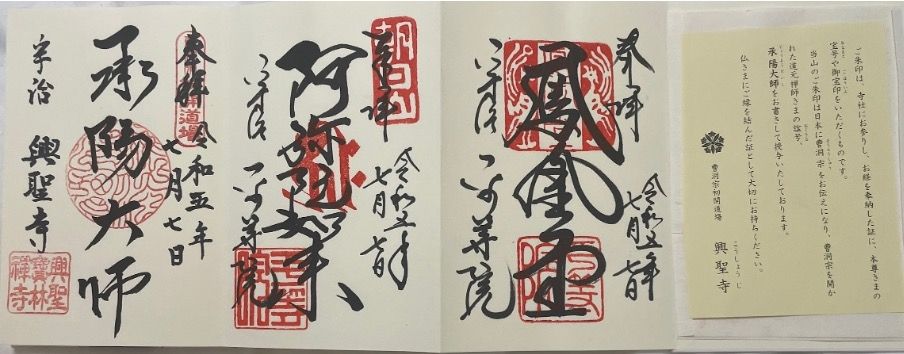 ご朱印は、寺社にお参りし、お経を奉納した証に、本尊さまの
宝号や御宝印をいただくものです。
当山のご朱印は日本に曹洞宗をお伝えになり、曹洞宗を開か
れた道元禅師さまの諡号、
承陽大師をお書きして授与いたしております。
仏さまにご縁を結んだ証として大切にお持ちください。
曹洞宗初開道場
興聖寺
こうしょうじ
奉拝
令和五年
七月七日
鳳凰堂
平等院
朝日山
奉拝
令和五年
七月七日
阿弥陀如来
平等院
奉拝
道場
令和五年
七月七日
承陽大師
宇治
興聖寺
興聖
寶林
禅寺